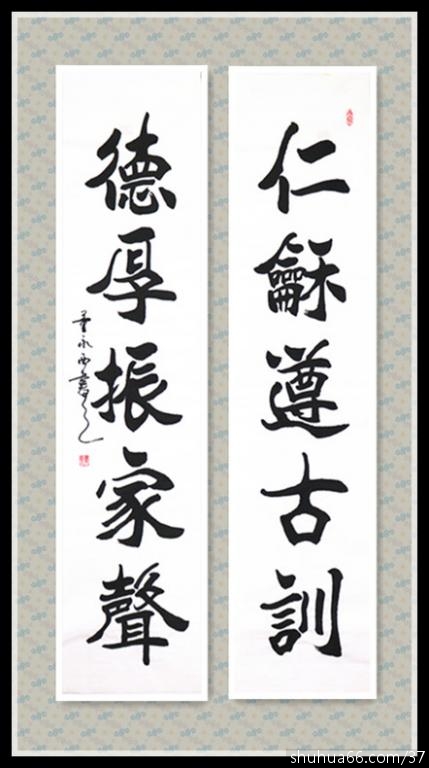 仁龢遵古訓
德厚振家聲
董永西書
shuhua66.com/37